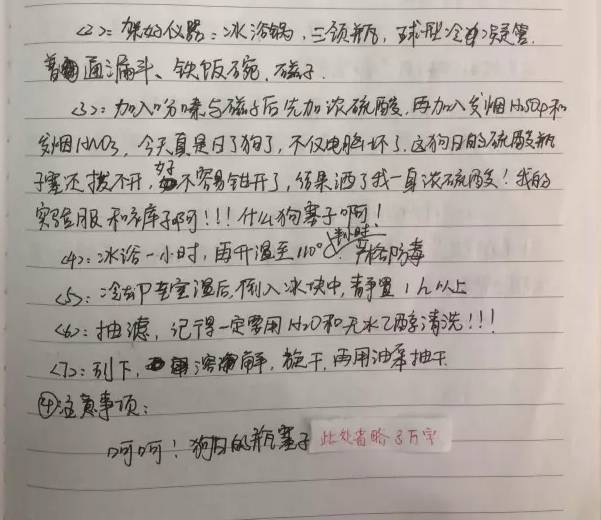 <2>：架好仪器：冰浴锅，三颈瓶，球型冷凝管，
普通漏斗、铁饭碗，磁子．
<3>：加入吩嗪与磁子后先加浓硫酸，再加入发烟H₂SO₄和
发烟HNO₃，今天真是日了狗了，不仅电脑坏了，这狗日的硫酸瓶
子塞还拔不开，好不容易钳开了，结果洒了我一身浓硫酸！我的
实验服和裤子啊！！！什么狗塞子啊！
<4>：冰浴一小时，再升温至110°
<5>：冷却至室温后，倒入冰块中，静置1h以上
<6>：抽滤，记得一定要用H₂O和无水乙醇清洗！！！
<7>：刮下，溶解，旋干，再用油泵抽干
④注意事项：
呵呵！狗日的瓶塞子 此处省略3万字